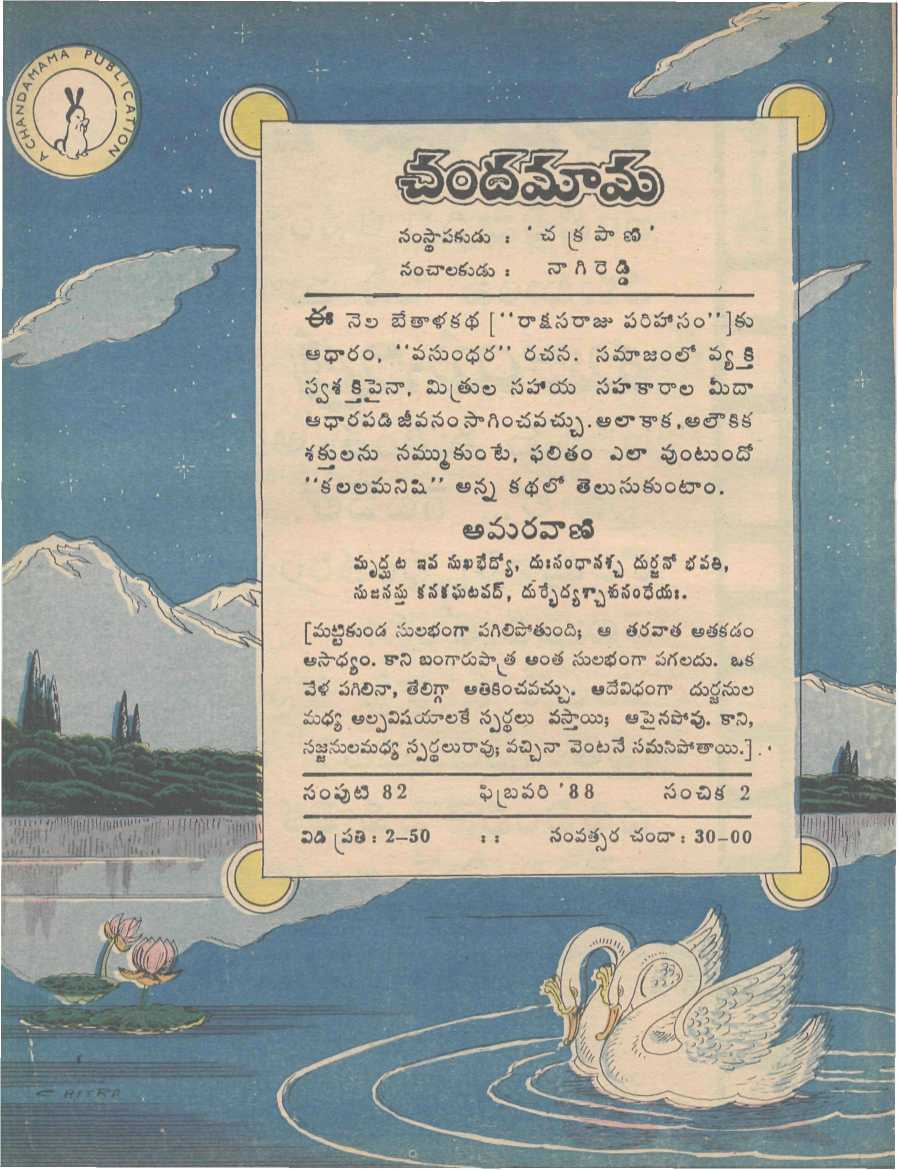 A CHANDAMAMA PUBLICATION
చందమామ
సంస్థాపకుడు : ' చ క్ర పా ణి '
సంచాలకుడు : నా గి రె డ్డి
ఈ నెల బేతాళకథ [‘‘రాక్షసరాజు పరిహాసం’’]కు
ఆధారం, ‘‘వసుంధర’’ రచన. సమాజంలో వ్యక్తి
స్వశక్తిపైనా, మిత్రుల సహాయ సహకారాల మీదా
ఆధారపడి జీవనం సాగించవచ్చు. అలా కాక, అలౌకిక
శక్తులను నమ్ముకుంటే, ఫలితం ఎలా వుంటుందో
‘‘కలలమనిషి’’ అన్న కథలో తెలుసుకుంటాం.
అమరవాణి
మృద్ఘట ఇవ సుఖభేద్యో, దుఃసంధానశ్చ దుర్జనో భవతి,
సుజనస్తు కనకఘటవద్, దుర్భేద్యశ్చాశుసంధేయః.
[మట్టికుండ సులభంగా పగిలిపోతుంది; ఆ తరవాత అతకడం
అసాధ్యం. కాని బంగారుపాత్ర అంత సులభంగా పగలదు. ఒక
వేళ పగిలినా, తేలిగ్గా అతికించవచ్చు. అదేవిధంగా దుర్జనుల
మధ్య అల్పవిషయాలకే స్పర్థలు వస్తాయి; ఆపైనపోవు. కాని,
సజ్జనులమధ్య స్పర్థలురావు; వచ్చినా వెంటనే సమసిపోతాయి.]
సంపుటి 82 ఫిబ్రవరి '88 సంచిక 2
విడి ప్రతి : 2-50 : : సంవత్సర చందా : 30-00
CHITRA